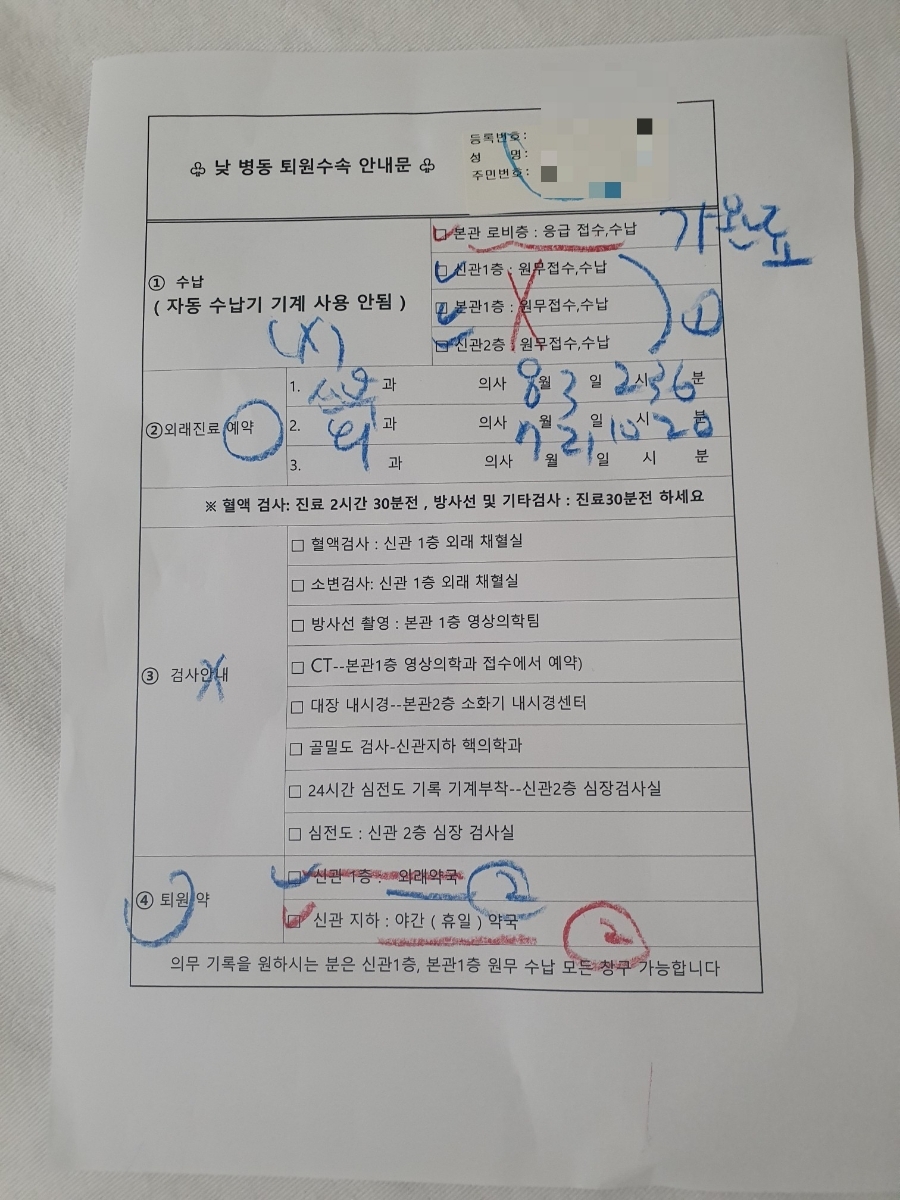 ♧ 낮 병동 퇴원수속 안내문 ♧
등록번호:
성 명:
주민번호:
① 수납
( 자동 수납기 기계 사용 안됨 )
(X)
□ 본관 로비층 : 응급 접수,수납
□ 신관1층 : 원무접수,수납
□ 본관1층 : 원무접수,수납
□ 신관2층 : 원무접수,수납
①
②외래진료 예약
1. 과 의사 8월 3일 2시 36분
2. 과 의사 7월 21일 10시 20분
3. 과 의사 월 일 시 분
※ 혈액 검사: 진료 2시간 30분전 , 방사선 및 기타검사 : 진료30분전 하세요
③ 검사안내
X
□ 혈액검사 : 신관 1층 외래 채혈실
□ 소변검사: 신관 1층 외래 채혈실
□ 방사선 촬영 : 본관 1층 영상의학팀
□ CT--본관1층 영상의학과 접수에서 예약)
□ 대장 내시경--본관2층 소화기 내시경센터
□ 골밀도 검사-신관지하 핵의학과
□ 24시간 심전도 기록 기계부착--신관2층 심장검사실
□ 심전도 : 신관 2층 심장 검사실
④ 퇴원 약
□ 신관 1층 : 외래약국 ②
□ 신관 지하 : 야간 ( 휴일 ) 약국 ②
의무 기록을 원하시는 분은 신관1층, 본관1층 원무 수납 모든 창구 가능합니다